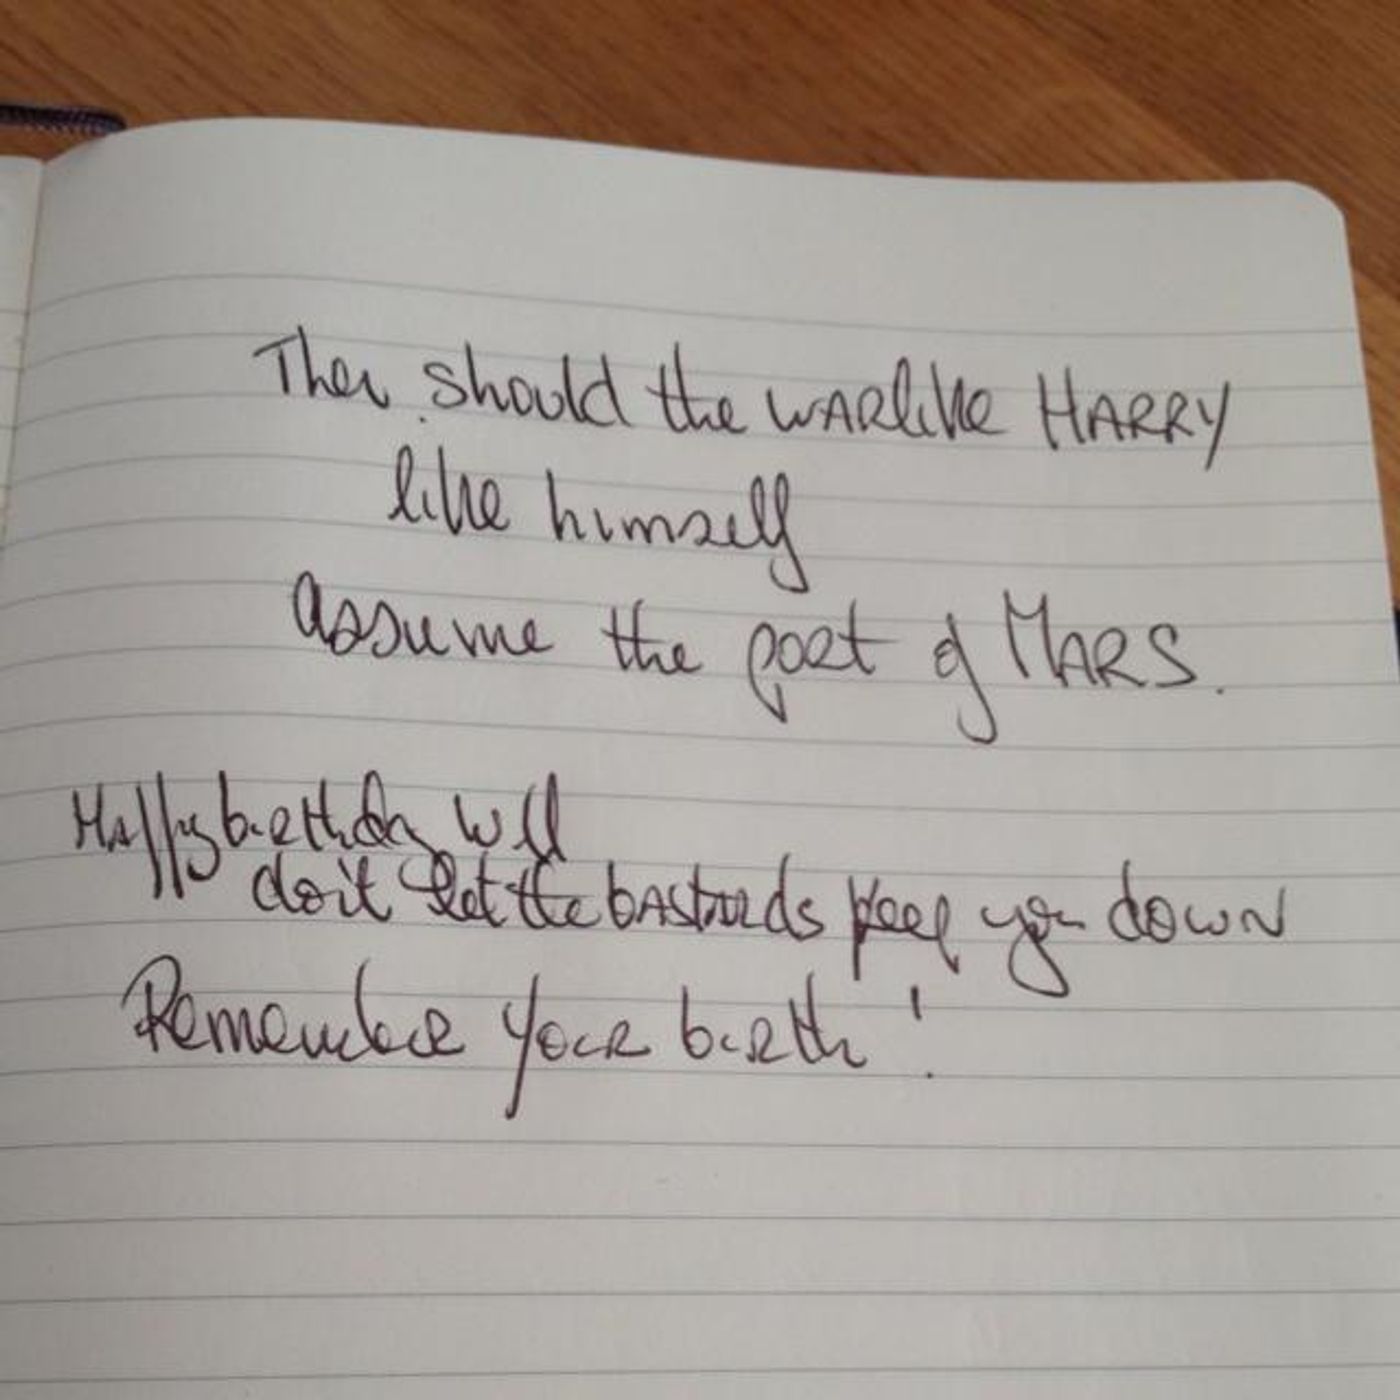 Then should the WARlike HARRY
like himself
assume the port of MARS.
Happy birthday Will
don't let the bastards keep you down
Remember your birth!